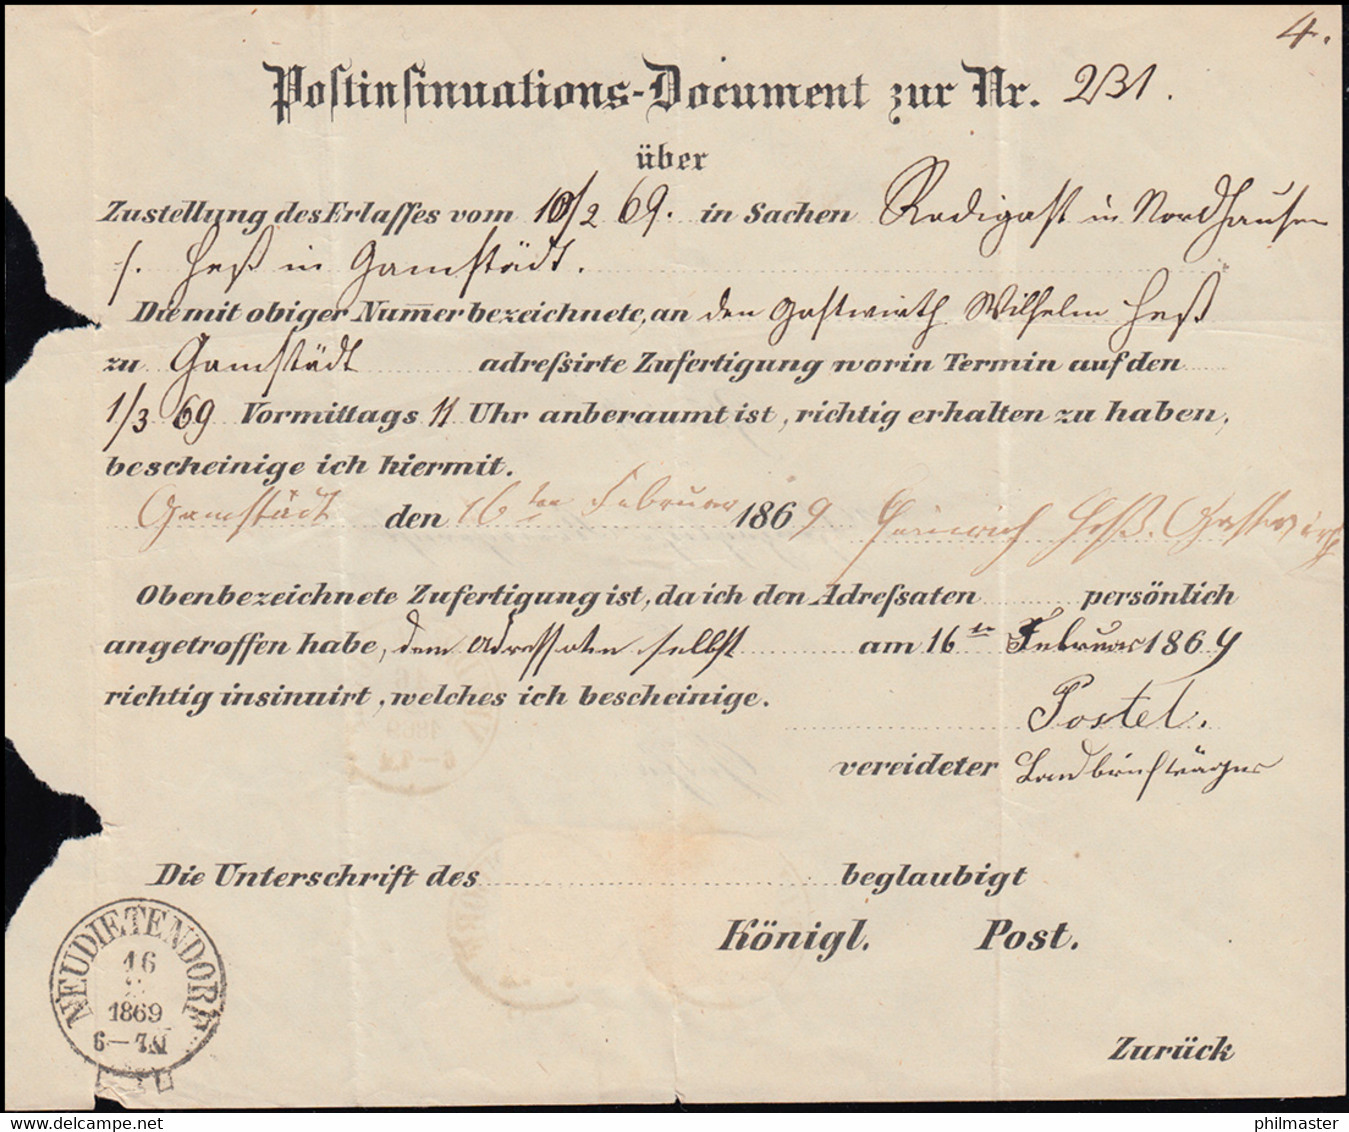 4.
Postinsinuations-Document zur Nr. 231.
über
Zustellung des Erlasses vom 10/2 69. in Sachen Radigast in Nordhausen
/. Heß in Gamstädt.
Die mit obiger Num̅er bezeichnete, an den Gastwirth Wilhelm Heß
zu Gamstädt adressirte Zufertigung worin Termin auf den
1/3 69 Vormittags 11 Uhr anberaumt ist, richtig erhalten zu haben,
bescheinige ich hiermit.
Gamstädt den 16ten Februar 1869 Heinrich Heß. Gastwirth
Obenbezeichnete Zufertigung ist, da ich den Adressaten persönlich
angetroffen habe, dem Adressaten selbst am 16te Februar 1869
richtig insinuirt, welches ich bescheinige.
Postel.
vereideter Landbriefträger
Die Unterschrift des beglaubigt
Königl. Post.
NEUDIETENDORF
16
2
1869
6-7 N
Zurück
philmaster